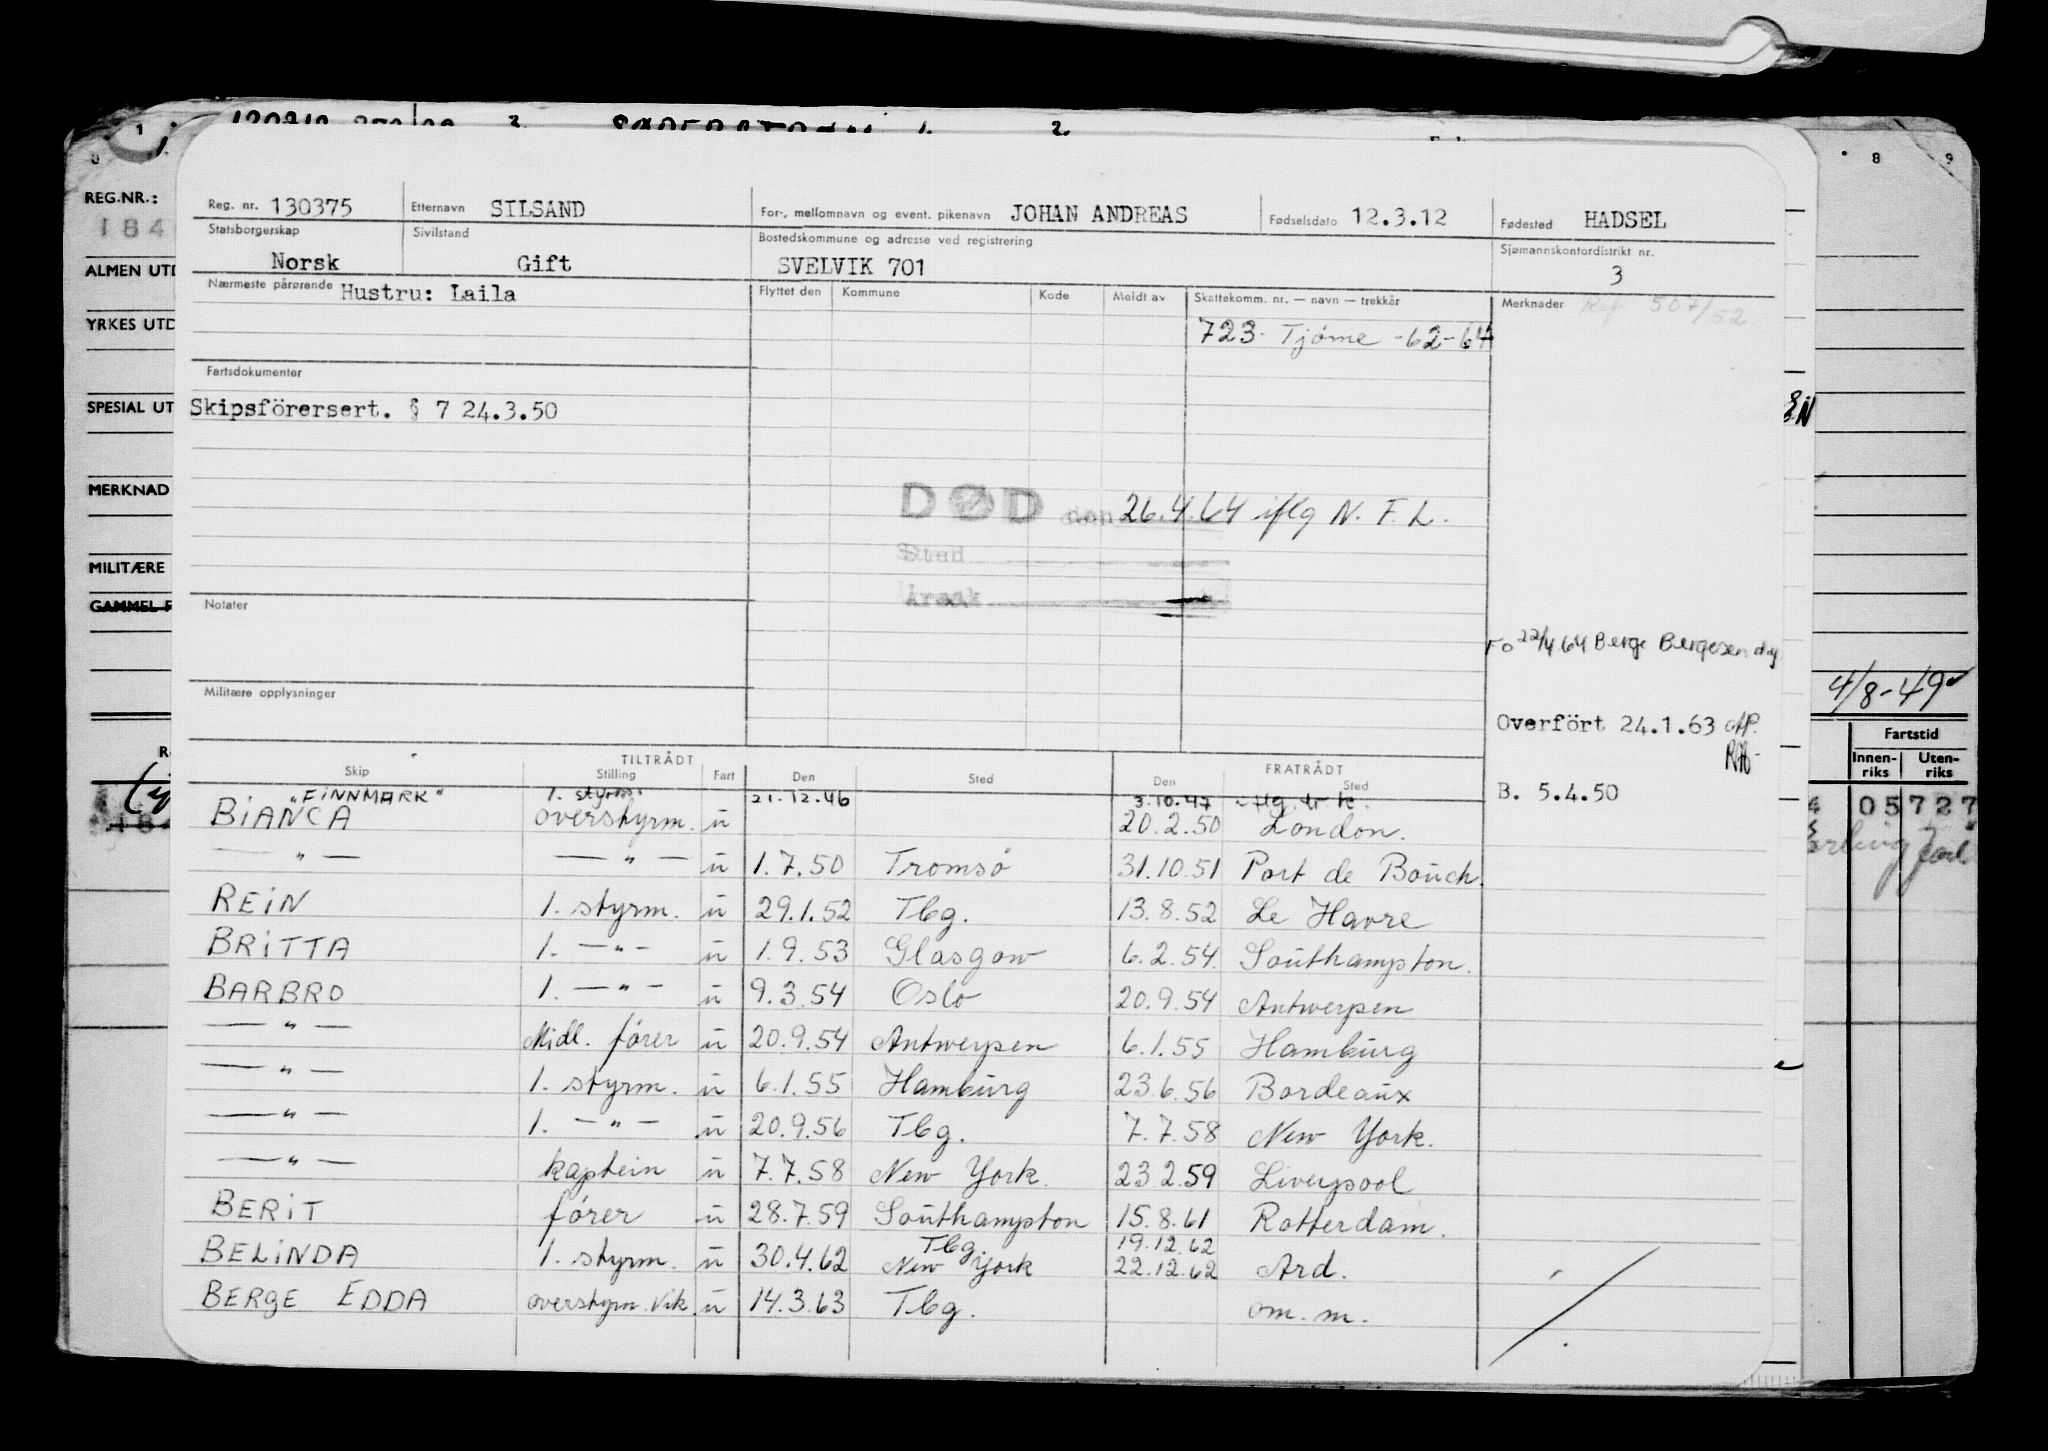 1 2 3 8 9
REG.NR.:
184
ALMEN UTD
YRKES UTD
SPESIAL UT
MERKNAD
MILITÆRE
GAMMEL F
Reg. nr. 130375 Etternavn SILSAND For-, mellomnavn og event. pikenavn JOHAN ANDREAS Fødselsdato 12.3.12 Fødested HADSEL
Statsborgerskap Norsk Sivilstand Gift Bostedskommune og adresse ved registrering SVELVIK 701 Sjømannskontordistrikt nr. 3
Nærmeste pårørende Hustru: Laila Flyttet den Kommune Kode Meldt av Skattekomm. nr. — navn — trekkår Merknader Ref 507/52
723 Tjöme -62-64
Fartsdokumenter
Skipsförersert. § 7 24.3.50
DØD den 26.4.64 iflg N. F. L.
Sted
Årsak
Notater
Fo 22/4 64 Berge Bergesen d.y.
Militære opplysninger
4/8-49
Overfört 24.1.63
B. 5.4.50
Fartstid
Innen-riks Uten-riks
05727
TILTRÅDT FRATRÅDT
Skip Stilling Fart Den Sted Den Sted
"FINNMARK" 1. styrm. 21.12.46 3.10.47
BIANCA overstyrm. u 20.2.50 London.
— " — — " — u 1.7.50 Tromsö 31.10.51 Port de Bouch.
REIN 1. styrm. u 29.1.52 Tbg. 13.8.52 Le Havre
BRITTA 1. — " — u 1.9.53 Glasgow 6.2.54 Southampton.
BARBRO 1. — " — u 9.3.54 Oslo 20.9.54 Antwerpen
— " — Midl. förer u 20.9.54 Antwerpen 6.1.55 Hamburg
— " — 1. styrm. u 6.1.55 Hamburg 23.6.56 Bordeaux
— " — 1. — " — u 20.9.56 Tbg. 7.7.58 New York.
— " — kaptein u 7.7.58 New York. 23.2.59 Liverpool
BERIT förer u 28.7.59 Southampton 15.8.61 Rotterdam.
Tbg. 19.12.62
BELINDA 1. styrm. u 30.4.62 New York 22.12.62 Ard.
BERGE EDDA overstyrm. vik. u 14.3.63 Tbg. om. m.